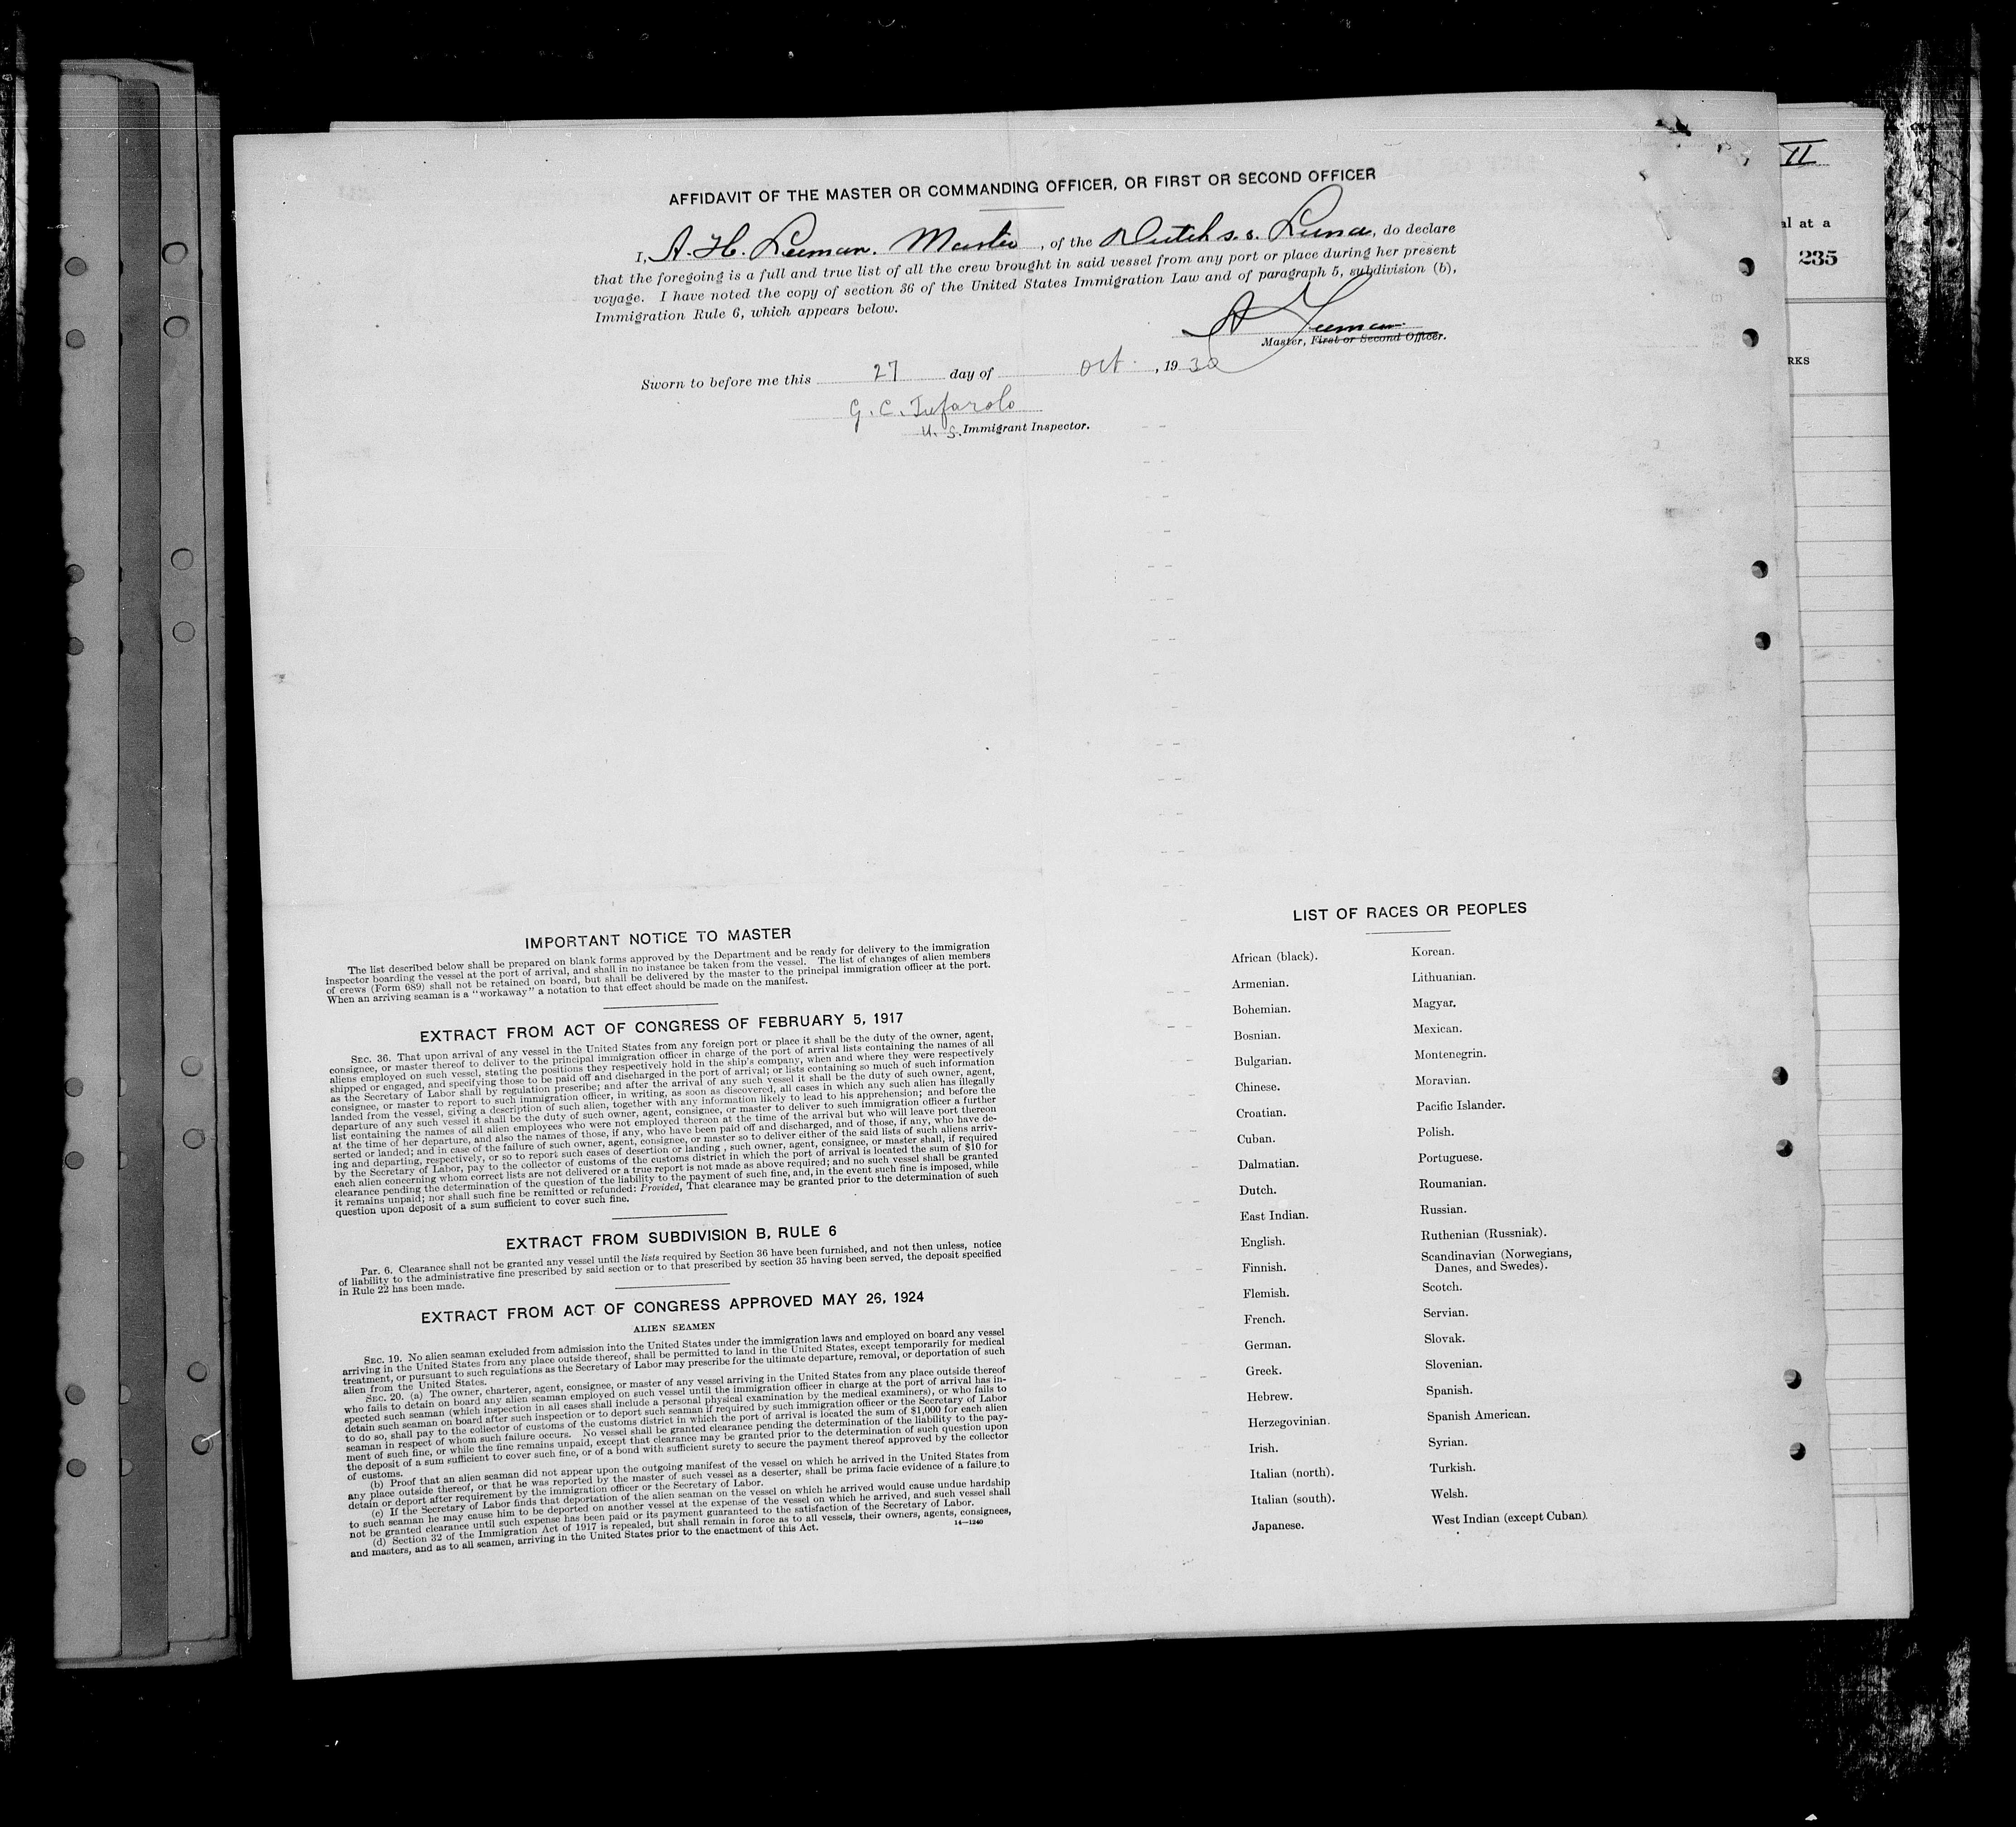 AFFIDAVIT OF THE MASTER OR COMMANDING OFFICER, OR FIRST OR SECOND OFFICER
I, A. H. Leeman. Master, of the Dutch s.s. Luna, do declare
that the foregoing is a full and true list of all the crew brought in said vessel from any port or place during her present
voyage. I have noted the copy of section 36 of the United States Immigration Law and of paragraph 5, subdivision (b),
Immigration Rule 6, which appears below.
A Leeman
Master, First or Second Officer.
Sworn to before me this 27 day of Oct., 1930
G. C. Tufarolo
U. S. Immigrant Inspector.
II
al at a
235
RKS
IMPORTANT NOTICE TO MASTER
The list described below shall be prepared on blank forms approved by the Department and be ready for delivery to the immigration
inspector boarding the vessel at the port of arrival, and shall in no instance be taken from the vessel. The list of changes of alien members
of crews (Form 689) shall not be retained on board, but shall be delivered by the master to the principal immigration officer at the port.
When an arriving seaman is a "workaway" a notation to that effect should be made on the manifest.
EXTRACT FROM ACT OF CONGRESS OF FEBRUARY 5, 1917
SEC. 36. That upon arrival of any vessel in the United States from any foreign port or place it shall be the duty of the owner, agent,
consignee, or master thereof to deliver to the principal immigration officer in charge of the port of arrival lists containing the names of all
aliens employed on such vessel, stating the positions they respectively hold in the ship's company, when and where they were respectively
shipped or engaged, and specifying those to be paid off and discharged in the port of arrival; or lists containing so much of such information
as the Secretary of Labor shall by regulation prescribe; and after the arrival of any such vessel it shall be the duty of such owner, agent,
consignee, or master to report to such immigration officer, in writing, as soon as discovered, all cases in which any such alien has illegally
landed from the vessel, giving a description of such alien, together with any information likely to lead to his apprehension; and before the
departure of any such vessel it shall be the duty of such owner, agent, consignee, or master to deliver to such immigration officer a further
list containing the names of all alien employees who were not employed thereon at the time of the arrival but who will leave port thereon
at the time of her departure, and also the names of those, if any, who have been paid off and discharged, and of those, if any, who have de-
serted or landed; and in case of the failure of such owner, agent, consignee, or master so to deliver either of the said lists of such aliens arriv-
ing and departing, respectively, or so to report such cases of desertion or landing, such owner, agent, consignee, or master shall, if required
by the Secretary of Labor, pay to the collector of customs of the customs district in which the port of arrival is located the sum of $10 for
each alien concerning whom correct lists are not delivered or a true report is not made as above required; and no such vessel shall be granted
clearance pending the determination of the question of the liability to the payment of such fine, and, in the event such fine is imposed, while
it remains unpaid; nor shall such fine be remitted or refunded: Provided, That clearance may be granted prior to the determination of such
question upon deposit of a sum sufficient to cover such fine.
EXTRACT FROM SUBDIVISION B, RULE 6
Par. 6. Clearance shall not be granted any vessel until the lists required by Section 36 have been furnished, and not then unless, notice
of liability to the administrative fine prescribed by said section or to that prescribed by section 35 having been served, the deposit specified
in Rule 22 has been made.
EXTRACT FROM ACT OF CONGRESS APPROVED MAY 26, 1924
ALIEN SEAMEN
SEC. 19. No alien seaman excluded from admission into the United States under the immigration laws and employed on board any vessel
arriving in the United States from any place outside thereof, shall be permitted to land in the United States, except temporarily for medical
treatment, or pursuant to such regulations as the Secretary of Labor may prescribe for the ultimate departure, removal, or deportation of such
alien from the United States.
SEC. 20. (a) The owner, charterer, agent, consignee, or master of any vessel arriving in the United States from any place outside thereof
who fails to detain on board any alien seaman employed on such vessel until the immigration officer in charge at the port of arrival has in-
spected such seaman (which inspection in all cases shall include a personal physical examination by the medical examiners), or who fails to
detain such seaman on board after such inspection or to deport such seaman if required by such immigration officer or the Secretary of Labor
to do so, shall pay to the collector of customs of the customs district in which the port of arrival is located the sum of $1,000 for each alien
seaman in respect of whom such failure occurs. No vessel shall be granted clearance pending the determination of the liability to the pay-
ment of such fine, or while the fine remains unpaid, except that clearance may be granted prior to the determination of such question upon
the deposit of a sum sufficient to cover such fine, or of a bond with sufficient surety to secure the payment thereof approved by the collector
of customs.
(b) Proof that an alien seaman did not appear upon the outgoing manifest of the vessel on which he arrived in the United States from
any place outside thereof, or that he was reported by the master of such vessel as a deserter, shall be prima facie evidence of a failure to
detain or deport after requirement by the immigration officer or the Secretary of Labor.
(c) If the Secretary of Labor finds that deportation of the alien seaman on the vessel on which he arrived would cause undue hardship
to such seaman he may cause him to be deported on another vessel at the expense of the vessel on which he arrived, and such vessel shall
not be granted clearance until such expense has been paid or its payment guaranteed to the satisfaction of the Secretary of Labor.
(d) Section 32 of the Immigration Act of 1917 is repealed, but shall remain in force as to all vessels, their owners, agents, consignees,
and masters, and as to all seamen, arriving in the United States prior to the enactment of this Act.
14—1240
LIST OF RACES OR PEOPLES
African (black).
Armenian.
Bohemian.
Bosnian.
Bulgarian.
Chinese.
Croatian.
Cuban.
Dalmatian.
Dutch.
East Indian.
English.
Finnish.
Flemish.
French.
German.
Greek.
Hebrew.
Herzegovinian.
Irish.
Italian (north).
Italian (south).
Japanese.
Korean.
Lithuanian.
Magyar.
Mexican.
Montenegrin.
Moravian.
Pacific Islander.
Polish.
Portuguese.
Roumanian.
Russian.
Ruthenian (Russniak).
Scandinavian (Norwegians,
Danes, and Swedes).
Scotch.
Servian.
Slovak.
Slovenian.
Spanish.
Spanish American.
Syrian.
Turkish.
Welsh.
West Indian (except Cuban).